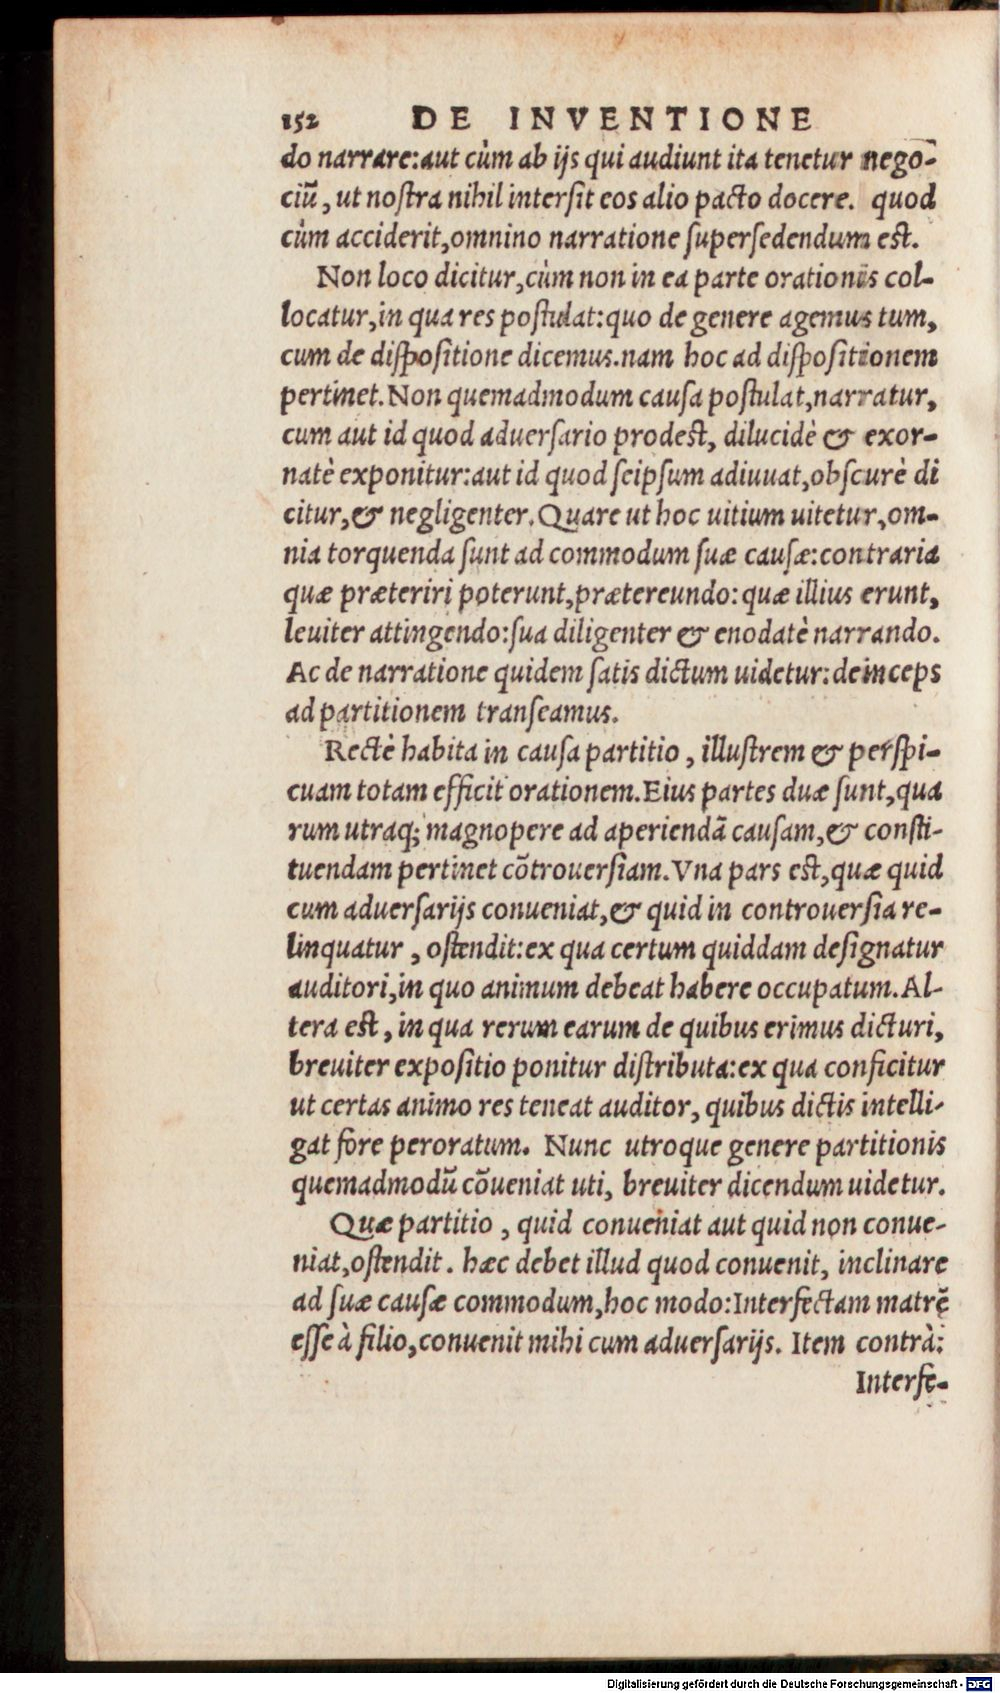 152 DE INVENTIONE
do narrare:aut cùm ab ijs qui audiunt ita tenetur nego-
ciũ, ut nostra nihil intersit eos alio pacto docere. quod
cùm acciderit,omnino narratione supersedendum est.
Non loco dicitur,cùm non in ea parte orationis col-
locatur,in qua res postulat:quo de genere agemus tum,
cum de dispositione dicemus.nam hoc ad dispositionem
pertinet.Non quemadmodum causa postulat,narratur,
cum aut id quod aduersario prodest, dilucidè & exor-
natè exponitur:aut id quod seipsum adiuuat,obscurè di
citur,& negligenter.Quare ut hoc uitium uitetur,om-
nia torquenda sunt ad commodum suæ causæ:contraria
quæ præteriri poterunt,prætereundo:quæ illius erunt,
leuiter attingendo:sua diligenter & enodatè narrando.
Ac de narratione quidem satis dictum uidetur:deinceps
ad partitionem transeamus.
Rectè habita in causa partitio , illustrem & perspi-
cuam totam efficit orationem.Eius partes duæ sunt,qua
rum utraq; magnopere ad aperiendã causam,& consti-
tuendam pertinet cõtrouersiam.Vna pars est,quæ quid
cum aduersarijs conueniat,& quid in controuersia re-
linquatur , ostendit:ex qua certum quiddam designatur
auditori,in quo animum debeat habere occupatum.Al-
tera est, in qua rerum earum de quibus erimus dicturi,
breuiter expositio ponitur distributa:ex qua conficitur
ut certas animo res teneat auditor, quibus dictis intelli-
gat fore peroratum. Nunc utroque genere partitionis
quemadmodũ cõueniat uti, breuiter dicendum uidetur.
Quæ partitio , quid conueniat aut quid non conue-
niat,ostendit. hæc debet illud quod conuenit, inclinare
ad suæ causæ commodum,hoc modo:Interfectam matrẽ
esse à filio,conuenit mihi cum aduersarijs. Item contrà:
Interfe-
Digitalisierung gefördert durch die Deutsche Forschungsgemeinschaft - DFG